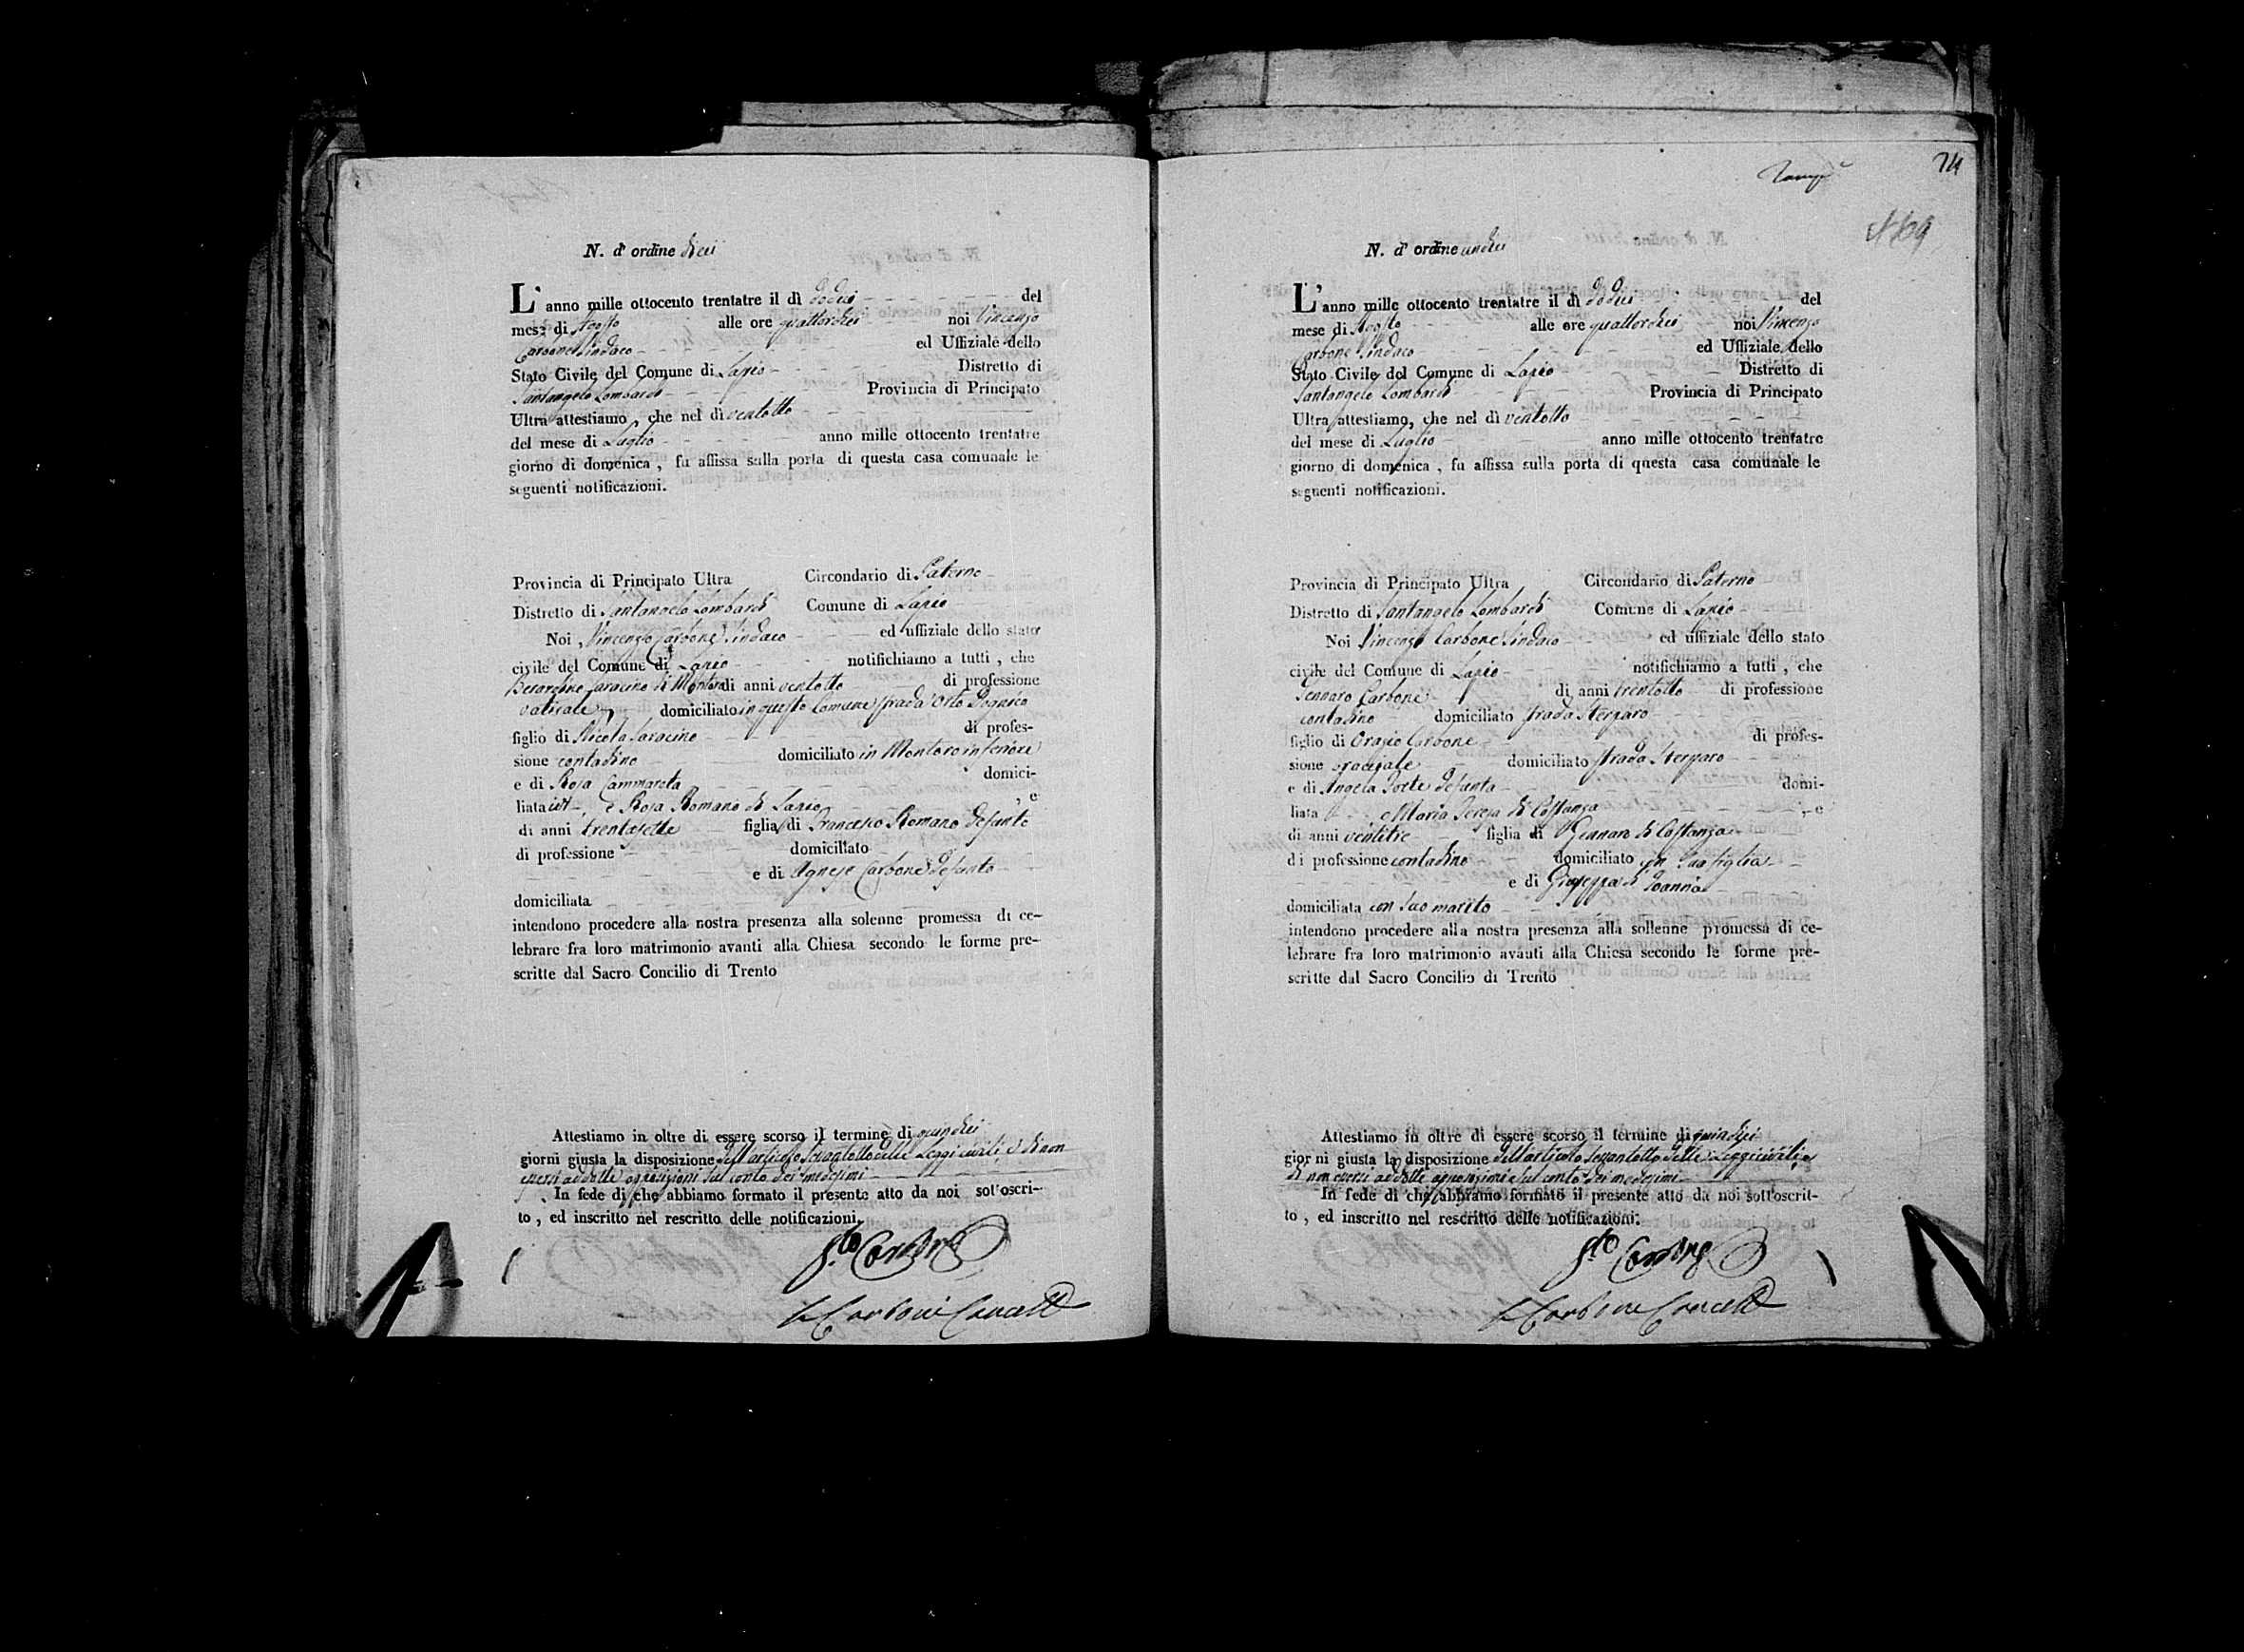 N. d' ordine dieci
L' anno mille ottocento trentatre il dì dodeci del
mese di Agosto alle ore quattordici noi Vincenzo
Carbone Sindaco ed Uffiziale dello
Stato Civile del Comune di Lapio Distretto di
Santangelo Lombardi Provincia di Principato
Ultra attestiamo, che nel dì ventotto
del mese di Luglio anno mille ottocento trentatre
giorno di domenica, fu affissa sulla porta di questa casa comunale le
seguenti notificazioni.
Provincia di Principato Ultra Circondario di Paterno
Distretto di Santangelo Lombardi Comune di Lapio
Noi, Vincenzo Carbone Sindaco ed uffiziale dello stato
civile del Comune di Lapio notifichiamo a tutti, che
Berardino Saracino di Montoro di anni ventotto di professione
vaticale domiciliato in questo Comune strada Orto
figlio di Nicola Saracino di profes-
sione contadino domiciliato in Montoro inferiore
e di Rosa Cammarota domici-
liata ivi e Rosa Romano di Lapio, e
di anni trentasette figlia di Francesco Romano defunto
di professione domiciliato
e di Agnese Carbone defunta
domiciliata
intendono procedere alla nostra presenza alla solenne promessa di ce-
lebrare fra loro matrimonio avanti alla Chiesa secondo le forme pre-
scritte dal Sacro Concilio di Trento
Attestiamo in oltre di essere scorso il termine di quindici
giorni giusta la disposizione dell'articolo sessantotto delle Leggi civili, e di non
essersi addotte opposizioni sul conto dei medesimi
In fede di che abbiamo formato il presente atto da noi sottoscri-
to, ed inscritto nel rescritto delle notificazioni.
Carbone
Carbone Cancell
74
N. d' ordine undici
L' anno mille ottocento trentatre il dì dodeci del
mese di Agosto alle ore quattordici noi Vincenzo
Carbone Sindaco ed Uffiziale dello
Stato Civile del Comune di Lapio Distretto di
Santangelo Lombardi Provincia di Principato
Ultra attestiamo, che nel dì ventotto
del mese di Luglio anno mille ottocento trentatre
giorno di domenica, fu affissa sulla porta di questa casa comunale le
seguenti notificazioni.
Provincia di Principato Ultra Circondario di Paterno
Distretto di Santangelo Lombardi Comune di Lapio
Noi Vincenzo Carbone Sindaco ed uffiziale dello stato
civile del Comune di Lapio notifichiamo a tutti, che
Gennaro Carbone di anni trentotto di professione
contadino domiciliato strada Sterparo
figlio di Orazio Carbone di profes-
sione bracciale domiciliato strada Sterparo
e di Angela Forte defunta domi-
liata e Maria Teresa di Costanza, e
di anni ventitre figlia di Gennaro di Costanza
di professione contadino domiciliato con sua figlia
e di Giuseppa di Joanna
domiciliata con suo marito
intendono procedere alla nostra presenza alla sollenne promessa di ce-
lebrare fra loro matrimonio avanti alla Chiesa secondo le forme pre-
scritte dal Sacro Concilio di Trento
Attestiamo in oltre di essere scorso il termine di quindici
giorni giusta la disposizione dell'articolo sessantotto delle Leggi civili, e
di non essersi addotte opposizioni sul conto dei medesimi
In fede di che abbiamo formato il presente atto da noi sottoscrit-
to, ed inscritto nel rescritto delle notificazioni.
Carbone
Carbone Cancell